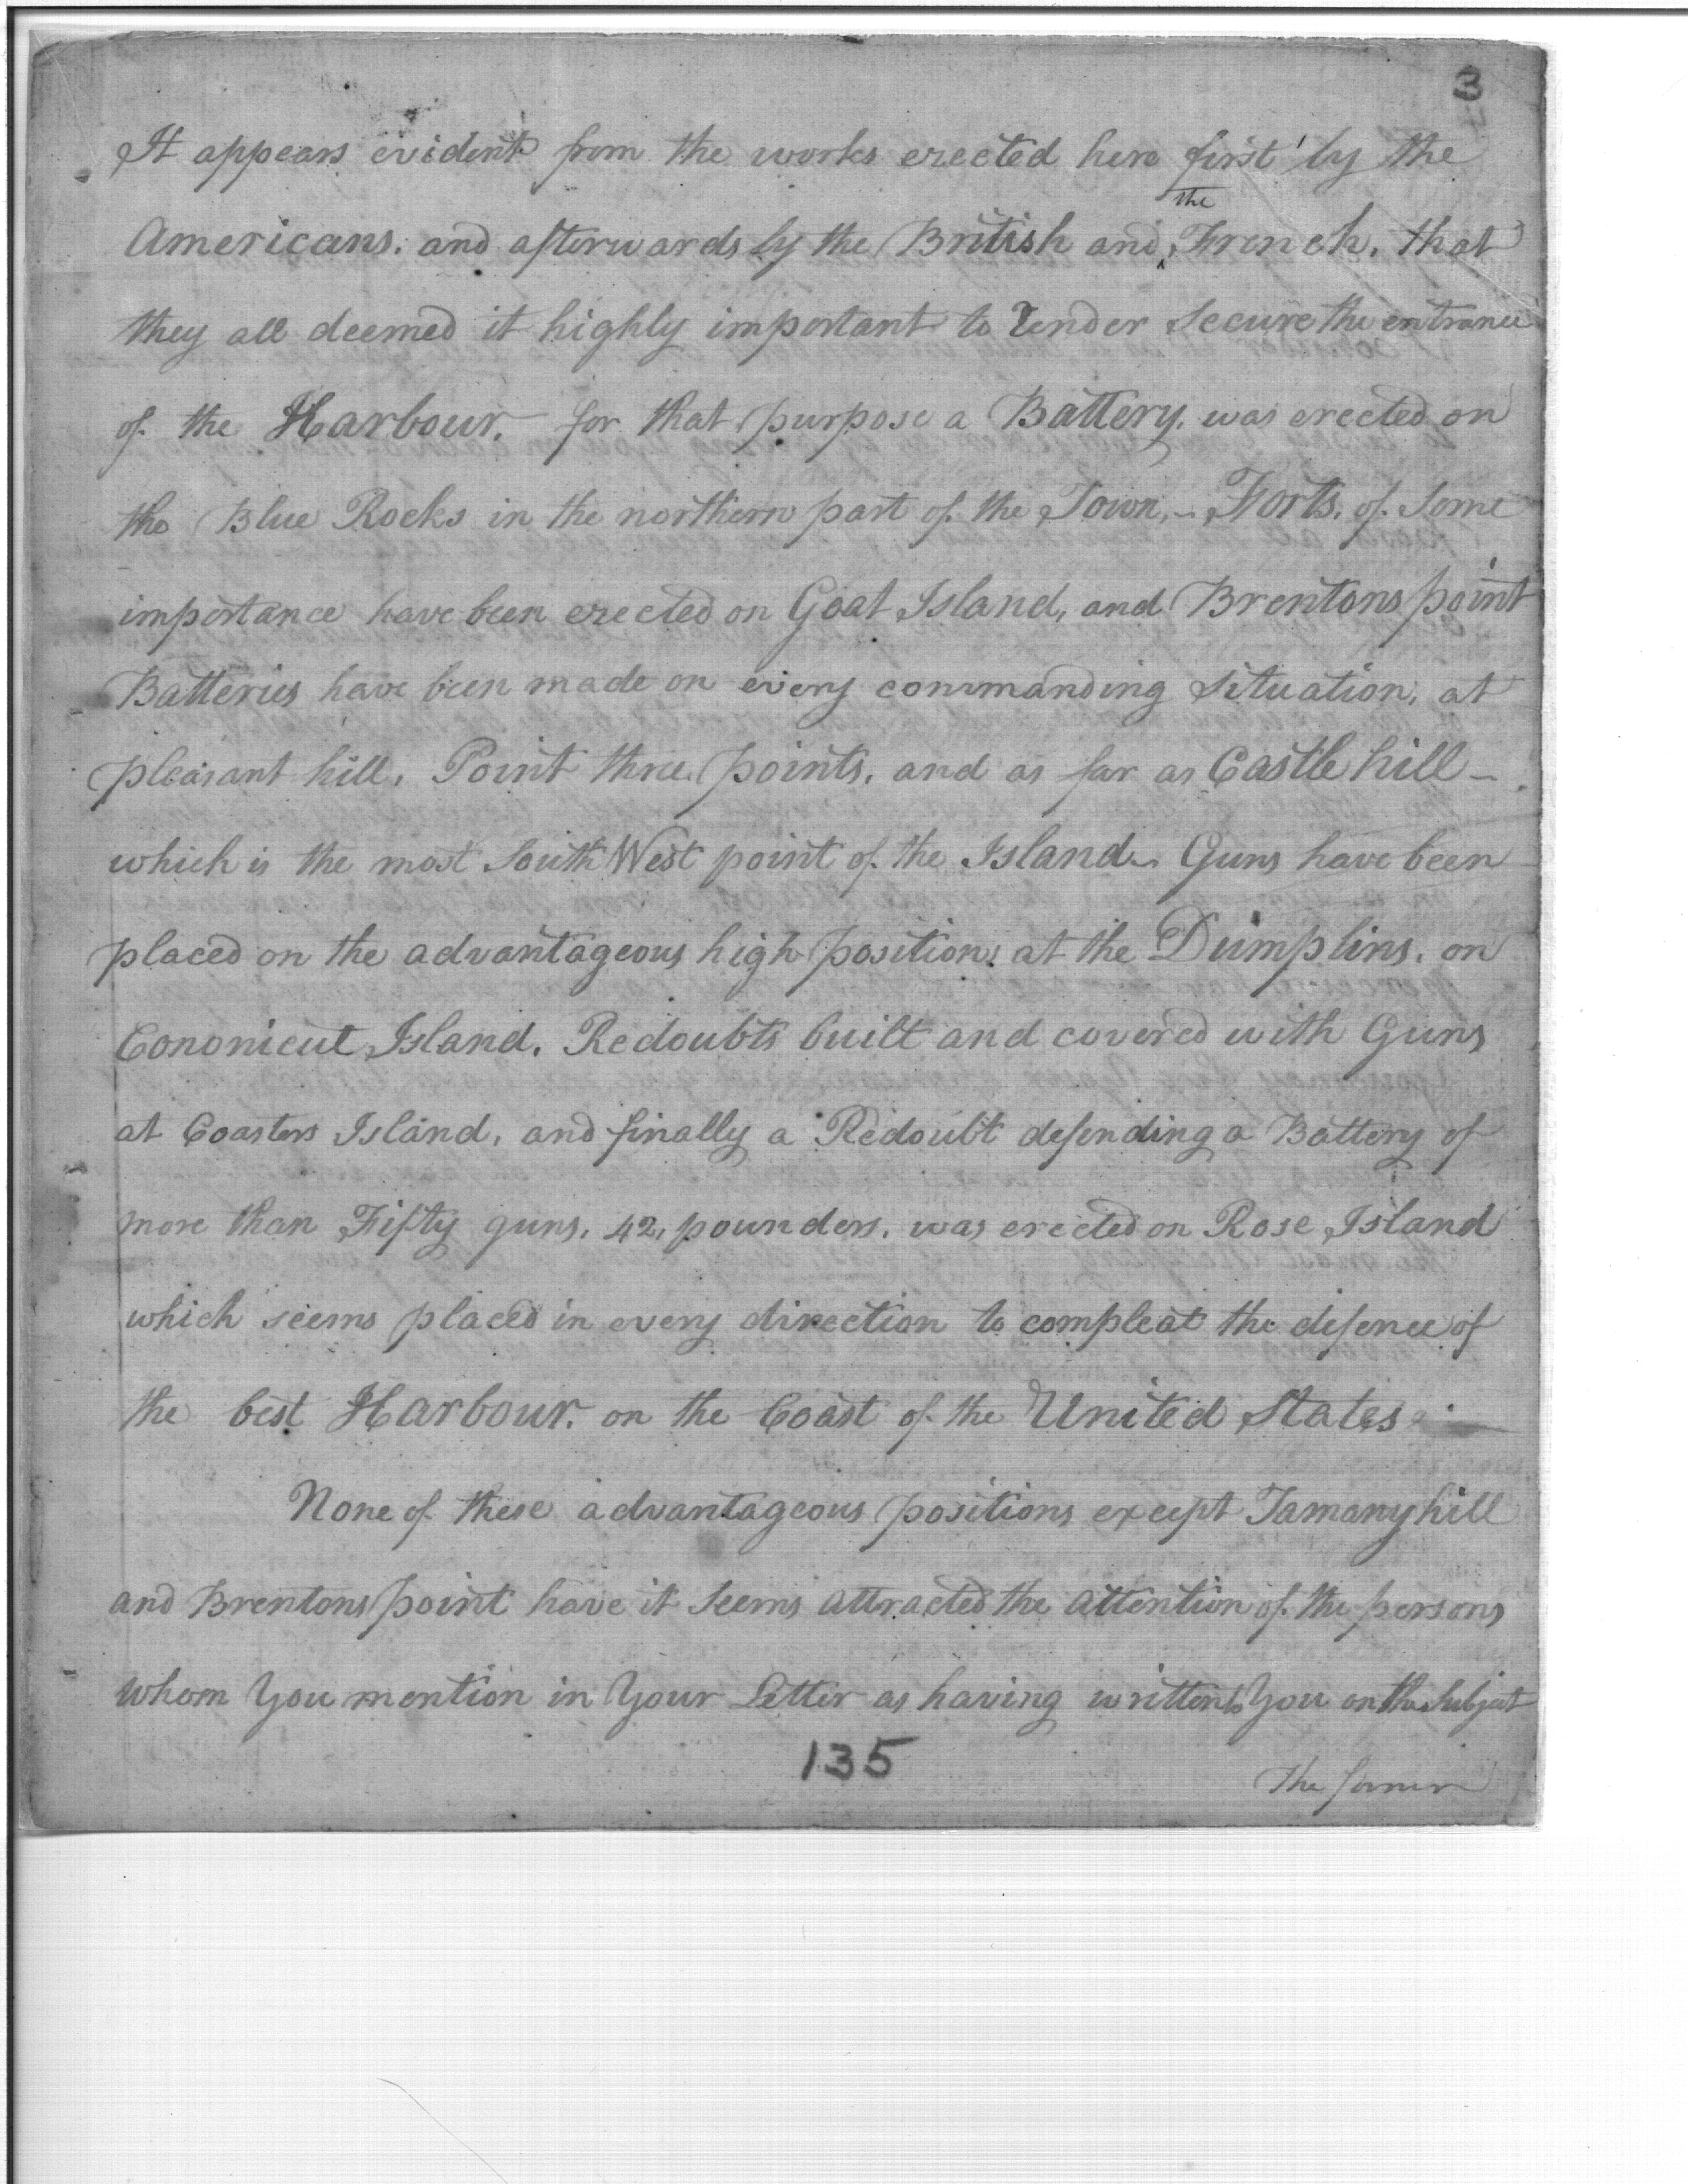 3
It appears evident from the works erected here first by the
the
Americans. and afterwards by the British and French. that
they all deemed it highly important to render secure the entrance
of the Harbour. for that purpose a Battery. was erected on
the Blue Rocks in the northern part of the Town, - Forts. of some
importance have been erected on Goat Island, and Brentons point
Batteries have been made on every commanding situation, at
pleasant hill, Point three points, and as far as Castle hill -
which is the most South West point of the Island. Guns have been
placed on the advantageous high positions at the Dumplins. on
Cononicut Island. Redoubts built and covered with Guns
at Coasters Island, and finally a Redoubt defending a Battery of
more than Fifty guns. 42, pounders. was erected on Rose Island
which seems placed in every direction to compleat the defence of
the best Harbour. on the Coast of the United States
None of these advantageous positions except Tamany hill
and Brentons point have it seems attracted the attention of the persons
whom You mention in Your Letter as having written to You on the subject
135
The former